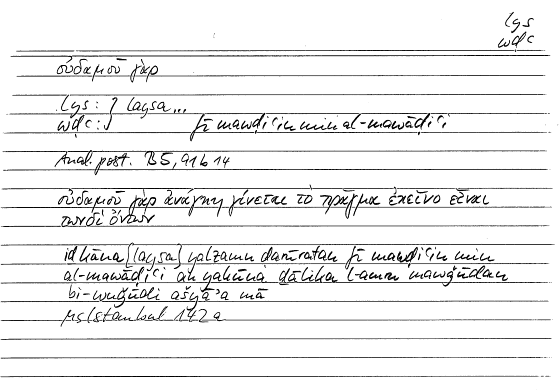 lys
wḍʿ
οὐδαμοῦ γὰρ
lys : } laysa...
wḍʿ : } fī mawḍiʿin min al-mawāḍiʿi
Anal. post. B 5, 91b14
οὐδαμοῦ γὰρ ἀνάγκη γίνεται τὸ πρᾶγμα ἐκεῖνο εἶναι
τωνδὶ ὄντων
id kāna {laysa} yalzamu ḍarūratan fī mawḍiʿin min
al-mawāḍiʿi an yakūna ḏālika l-amru mawǧūdan
bi-wuǧūdi ašyāʾa mā
Ms Istanbul 142a